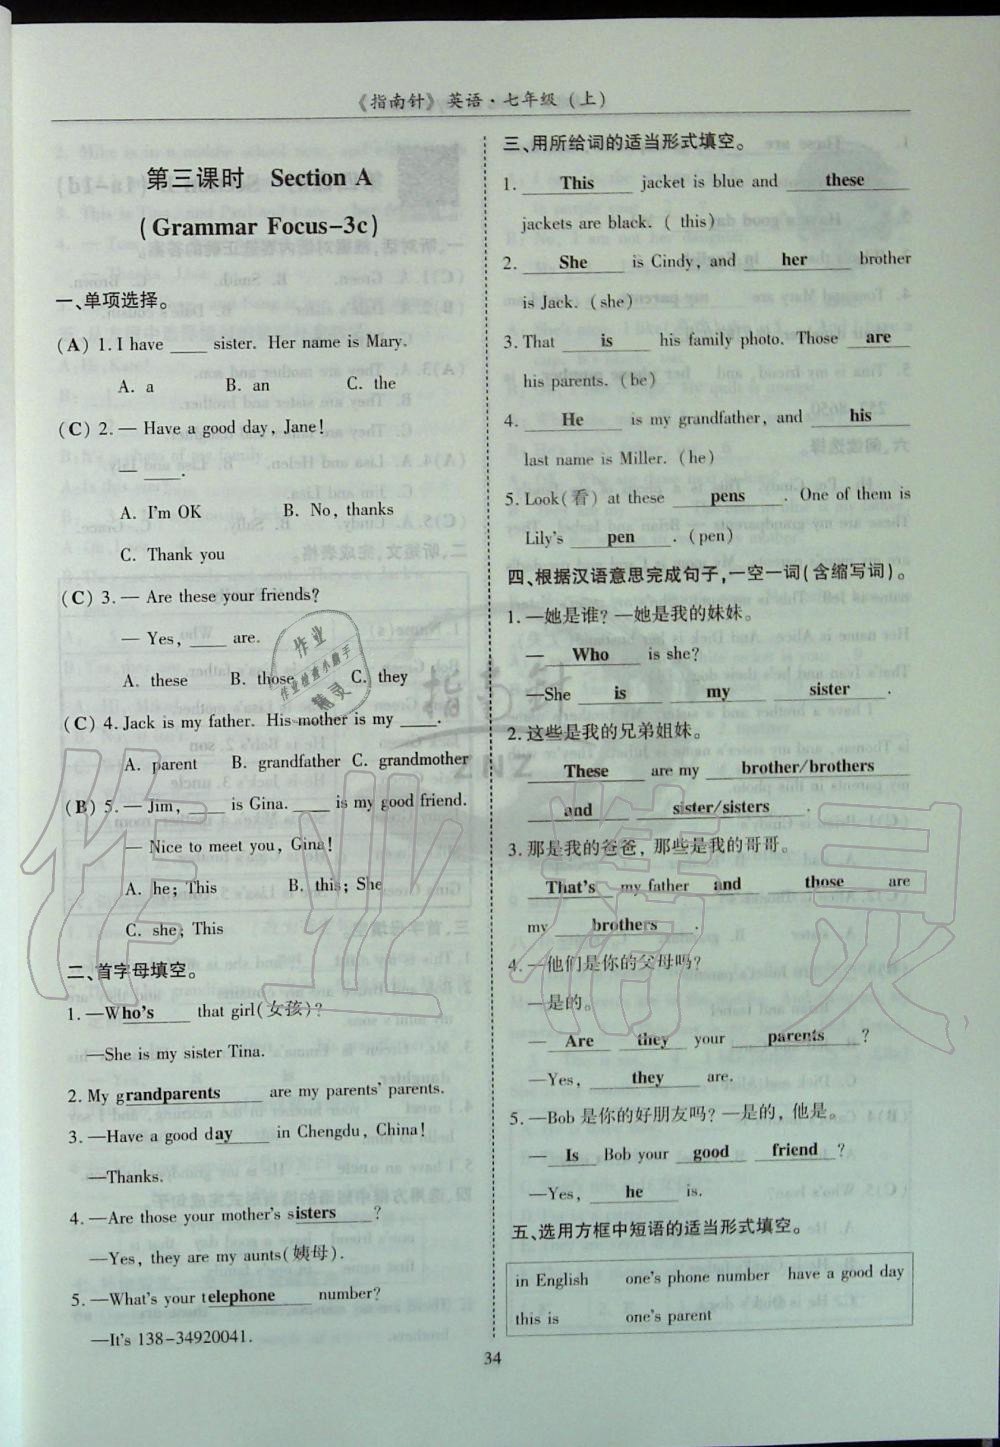 《指南针》英语·七年级(上)
第三课时 Section A
(Grammar Focus-3c)
一、单项选择。
(A) 1. I have ____ sister. Her name is Mary.
A. a B. an C. the
(C) 2. — Have a good day, Jane!
— ____.
A. I'm OK B. No, thanks
C. Thank you
(C) 3. — Are these your friends?
— Yes, ____ are.
A. these B. those C. they
(C) 4. Jack is my father. His mother is my ____.
A. parent B. grandfather C. grandmother
(B) 5. — Jim, ____ is Gina. ____ is my good friend.
— Nice to meet you, Gina!
A. he; This B. this; She
C. she; This
二、首字母填空。
1. —Who's that girl(女孩)?
—She is my sister Tina.
2. My grandparents are my parents' parents.
3. —Have a good day in Chengdu, China!
—Thanks.
4. —Are those your mother's sisters?
—Yes, they are my aunts(姨母).
5. —What's your telephone number?
—It's 138-34920041.
三、用所给词的适当形式填空。
1. This jacket is blue and these
jackets are black. (this)
2. She is Cindy, and her brother
is Jack. (she)
3. That is his family photo. Those are
his parents. (be)
4. He is my grandfather, and his
last name is Miller. (he)
5. Look(看) at these pens. One of them is
Lily's pen. (pen)
四、根据汉语意思完成句子,一空一词(含缩写词)。
1. —她是谁? —她是我的妹妹。
—Who is she?
—She is my sister.
2. 这些是我的兄弟姐妹。
These are my brother/brothers
and sister/sisters.
3. 那是我的爸爸, 那些是我的哥哥。
That's my father and those are
my brothers.
4. —他们是你的父母吗?
—是的。
—Are they your parents?
—Yes, they are.
5. —Bob 是你的好朋友吗? —是的, 他是。
—Is Bob your good friend?
—Yes, he is.
五、选用方框中短语的适当形式填空。
in English one's phone number have a good day
this is one's parent
34
作业
作业检查小助手
精灵
指南针
ZNZ
作业精灵